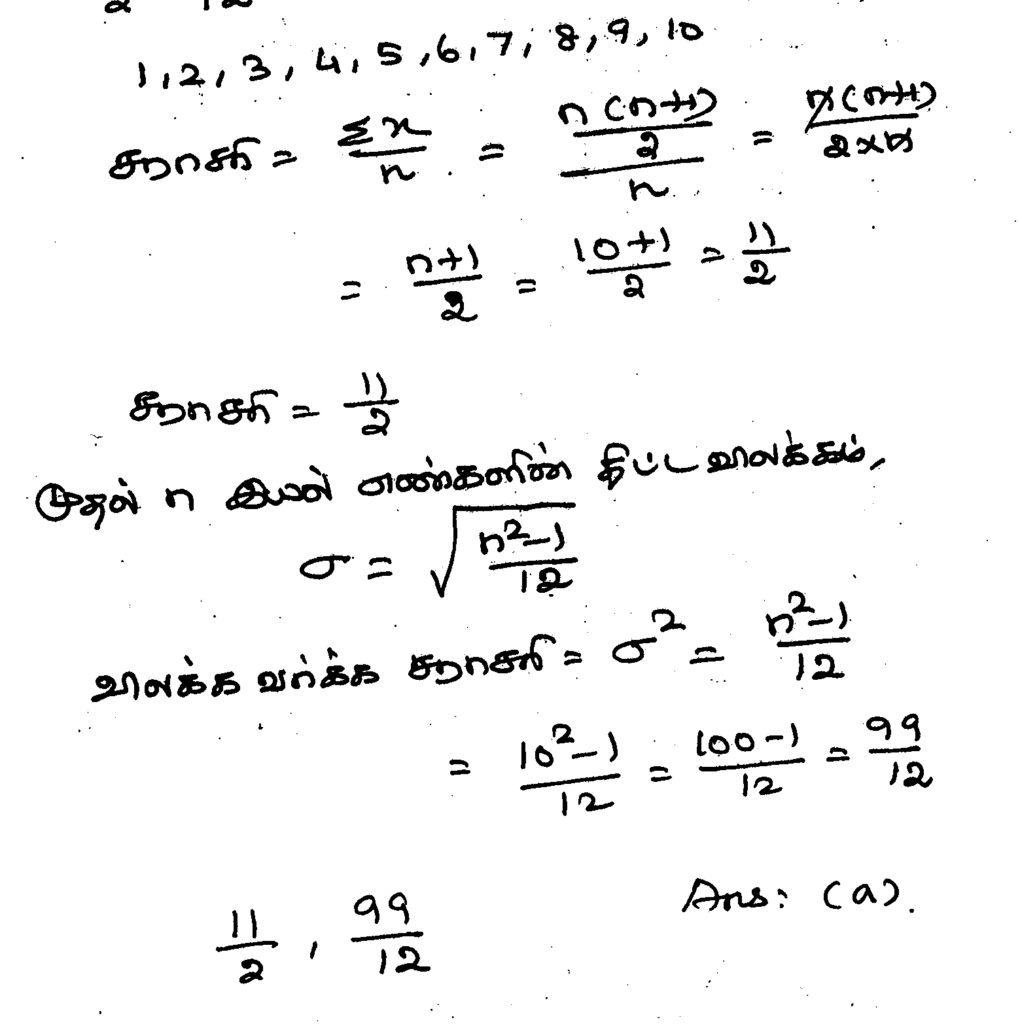 1, 2, 3, 4, 5, 6, 7, 8, 9, 10
சராசரி = Σx/n = (n(n+1)/2)/n = n(n+1)/(2×n)
= (n+1)/2 = (10+1)/2 = 11/2
சராசரி = 11/2
முதல் n இயல் எண்களின் திட்ட விலக்கம்,
σ = √((n²-1)/12)
விலக்க வர்க்க சராசரி = σ² = (n²-1)/12
= (10²-1)/12 = (100-1)/12 = 99/12
11/2 , 99/12 Ans: (a).